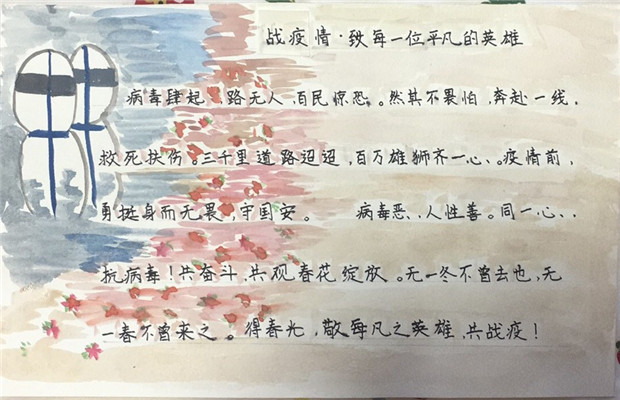 战疫情·致每一位平凡的英雄
病毒肆起，路无人，百民惊恐。然其不畏怕，奔赴一线，
救死扶伤。三千里道路迢迢，百万雄狮齐一心、。疫情前，
勇挺身而无畏，守国安。 病毒恶、，人性善。同一心、，
抗病毒！共奋斗，共观春花绽放。无一冬不曾去也，无
一春不曾来之。得春光，敬每凡之英雄，共战疫！